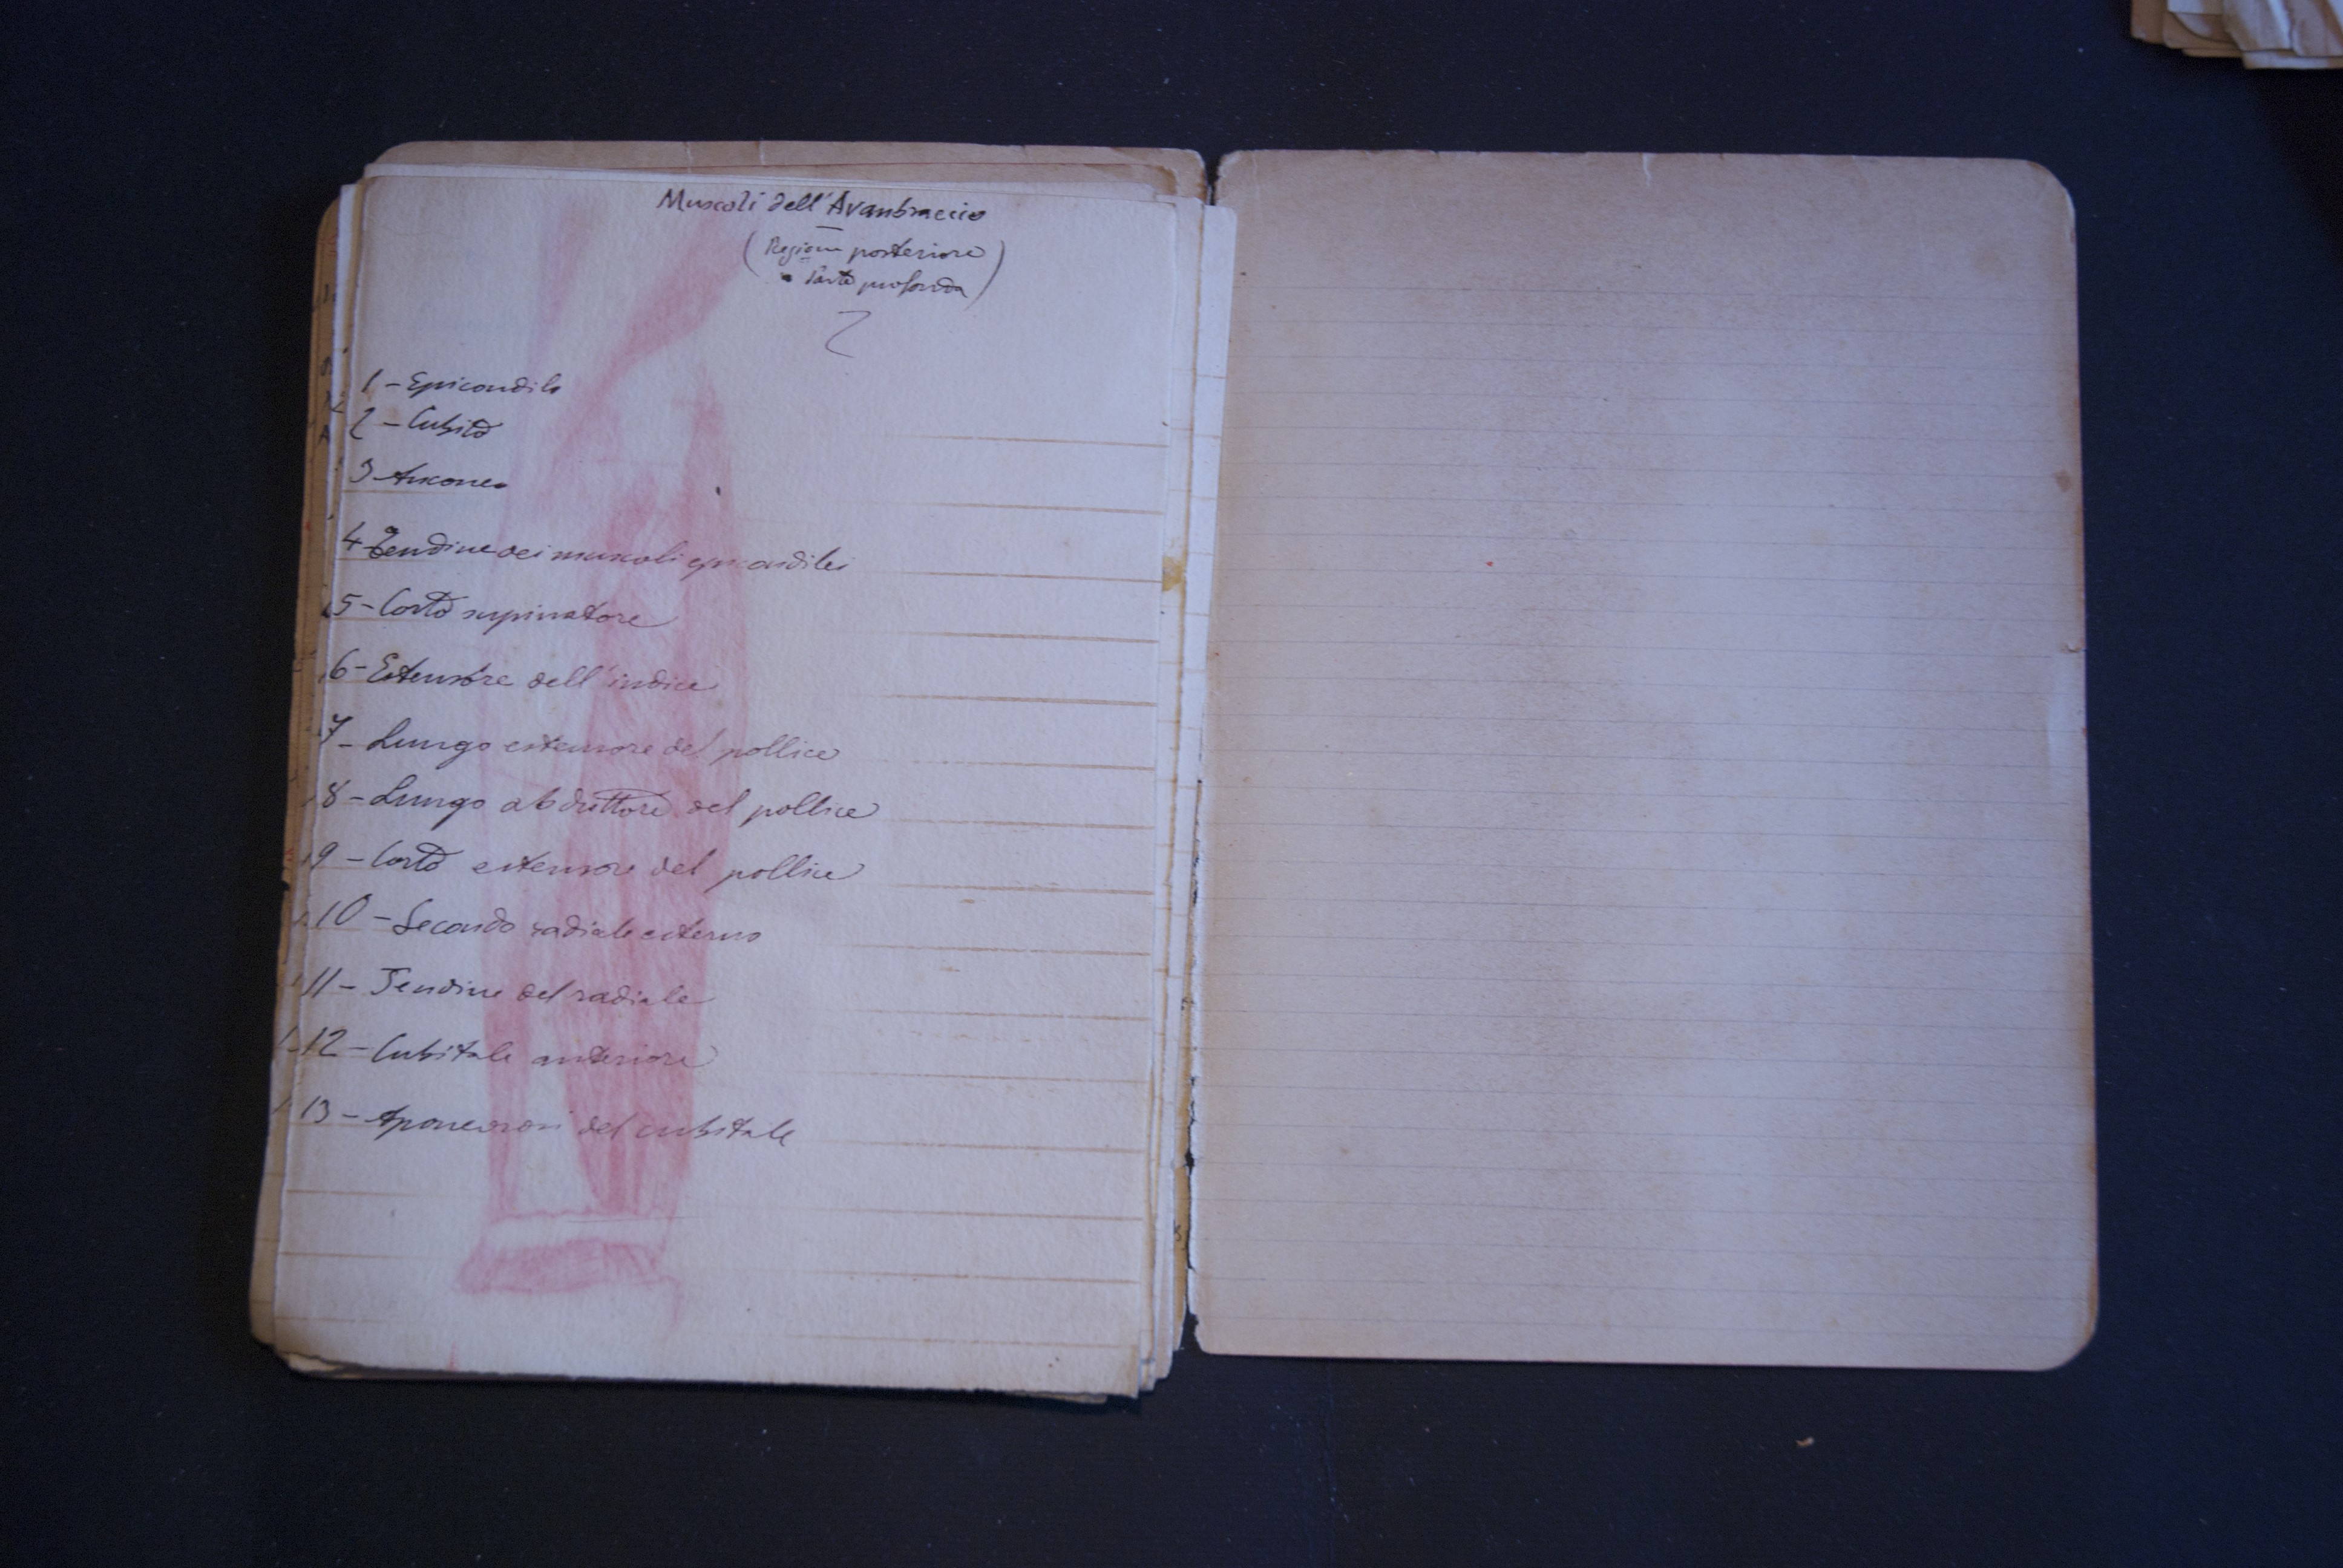 Muscoli dell'Avanbraccio
(Regione posteriore
Parte profonda)
1 - Epicondilo
2 - Cubito
3 Anconeo
4 - Tendine dei muscoli epicondilei
5 - Corto supinatore
6 - Estensore dell'indice
7 - Lungo estensore del pollice
8 - Lungo abduttore del pollice
9 - Corto estensore del pollice
10 - Secondo radiale esterno
11 - Tendine del radiale
12 - Cubitale anteriore
13 - Aponeurosi del cubitale